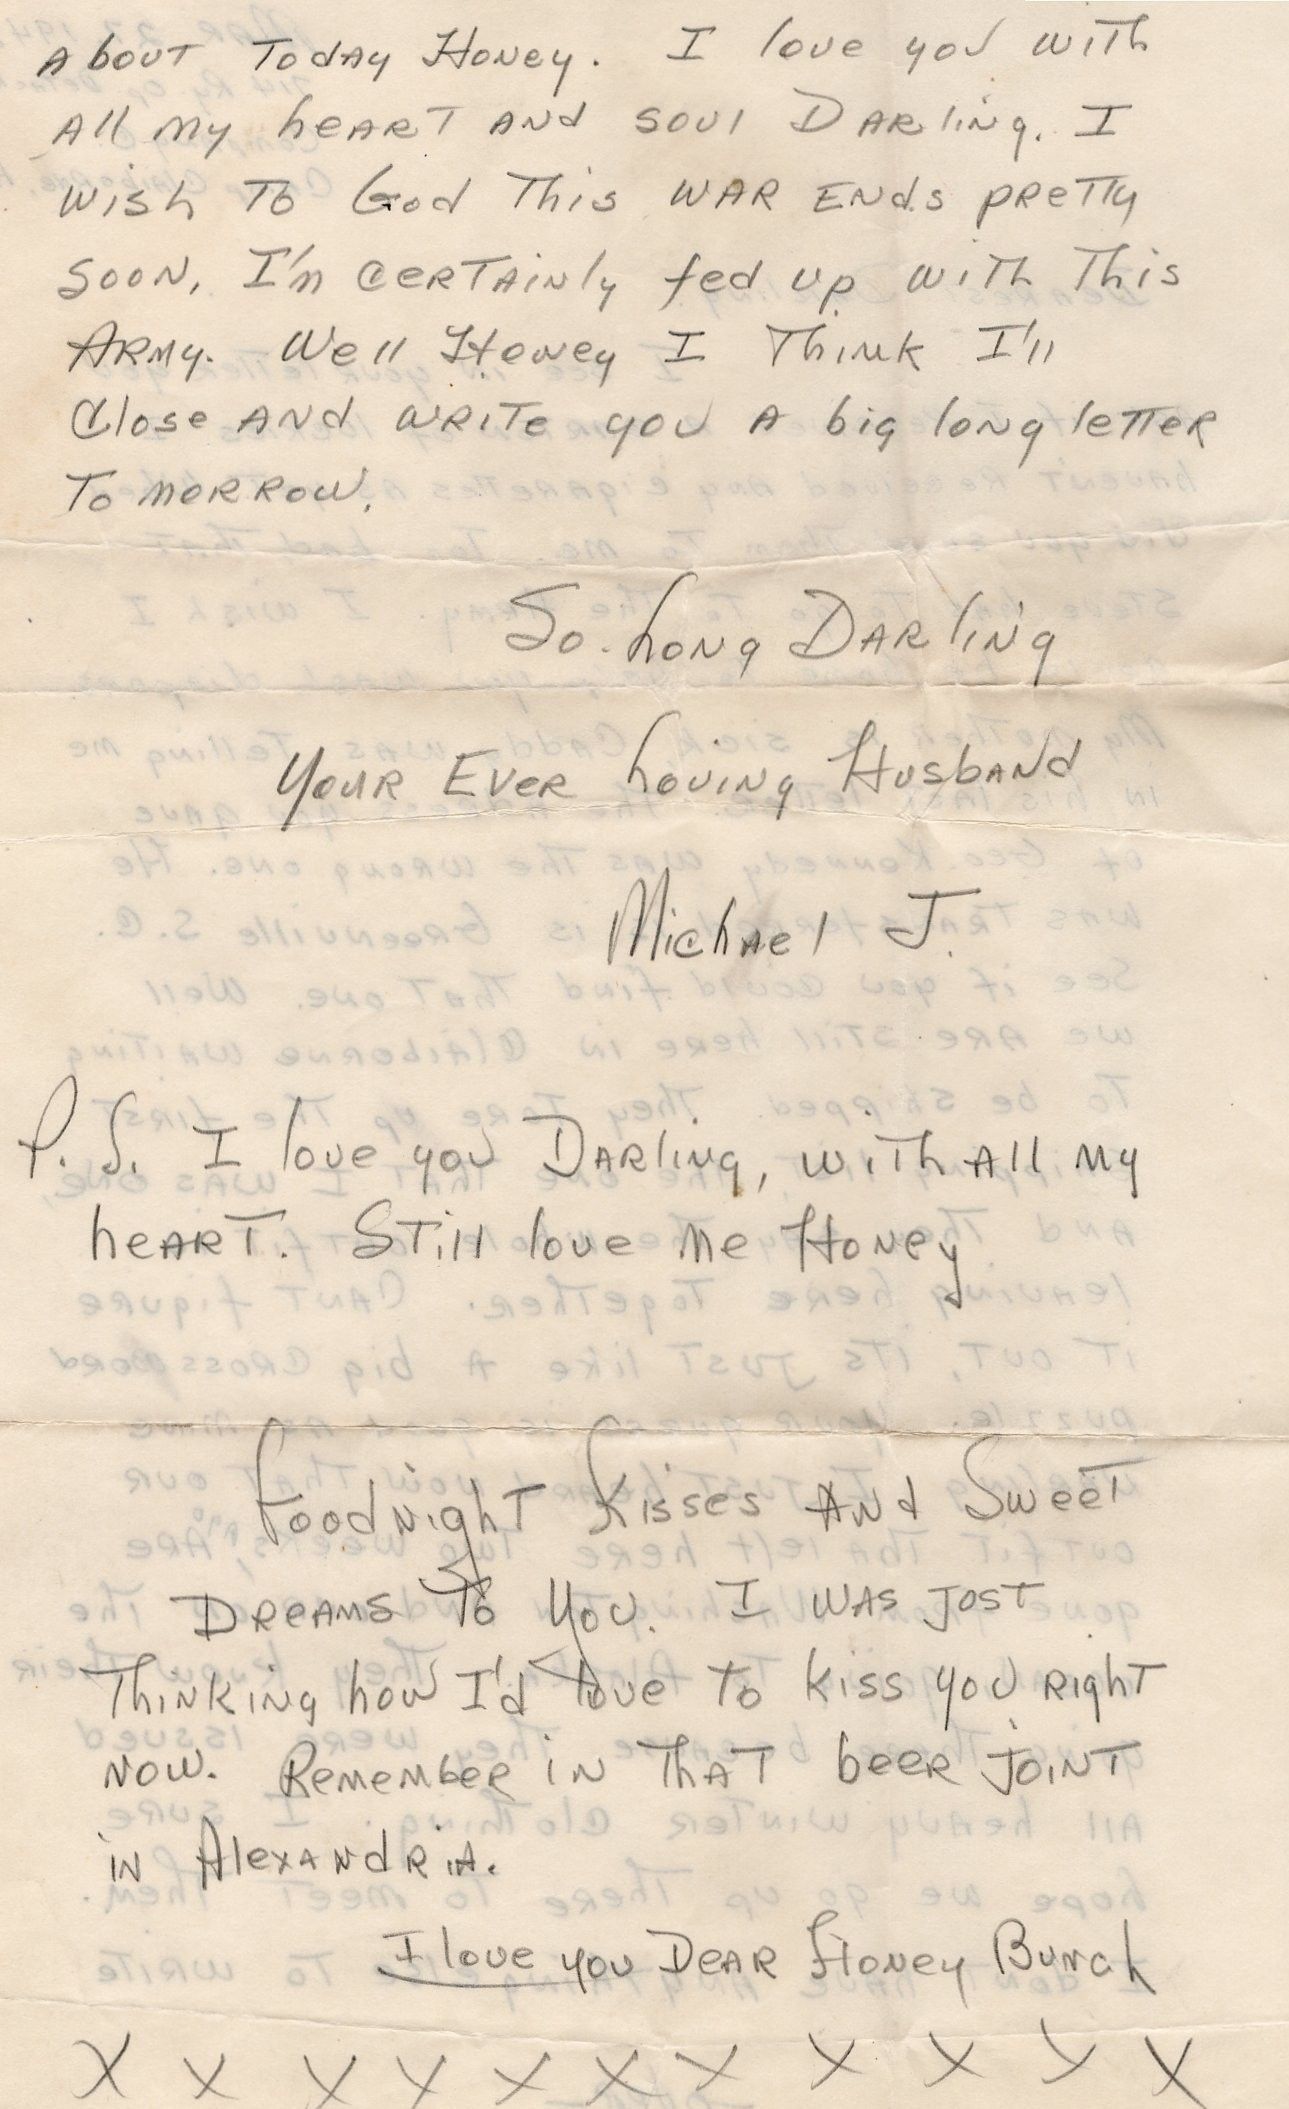 About Today Honey. I love you with
All my heart and soul Darling. I
wish to God this war ends pretty
soon, I'm certainly fed up with this
Army. Well Honey I think I'll
Close and write you a big long letter
tomorrow.
So Long Darling
Your Ever Loving Husband
Michael J.
P.S. I love you Darling, with all my
heart. Still love me Honey
Goodnight Kisses And Sweet
Dreams to You. I was just
thinking how I'd love to kiss you right
now. Remember in that beer joint
in Alexandria.
I love you Dear Honey Bunch
X X X X X X X X X X X